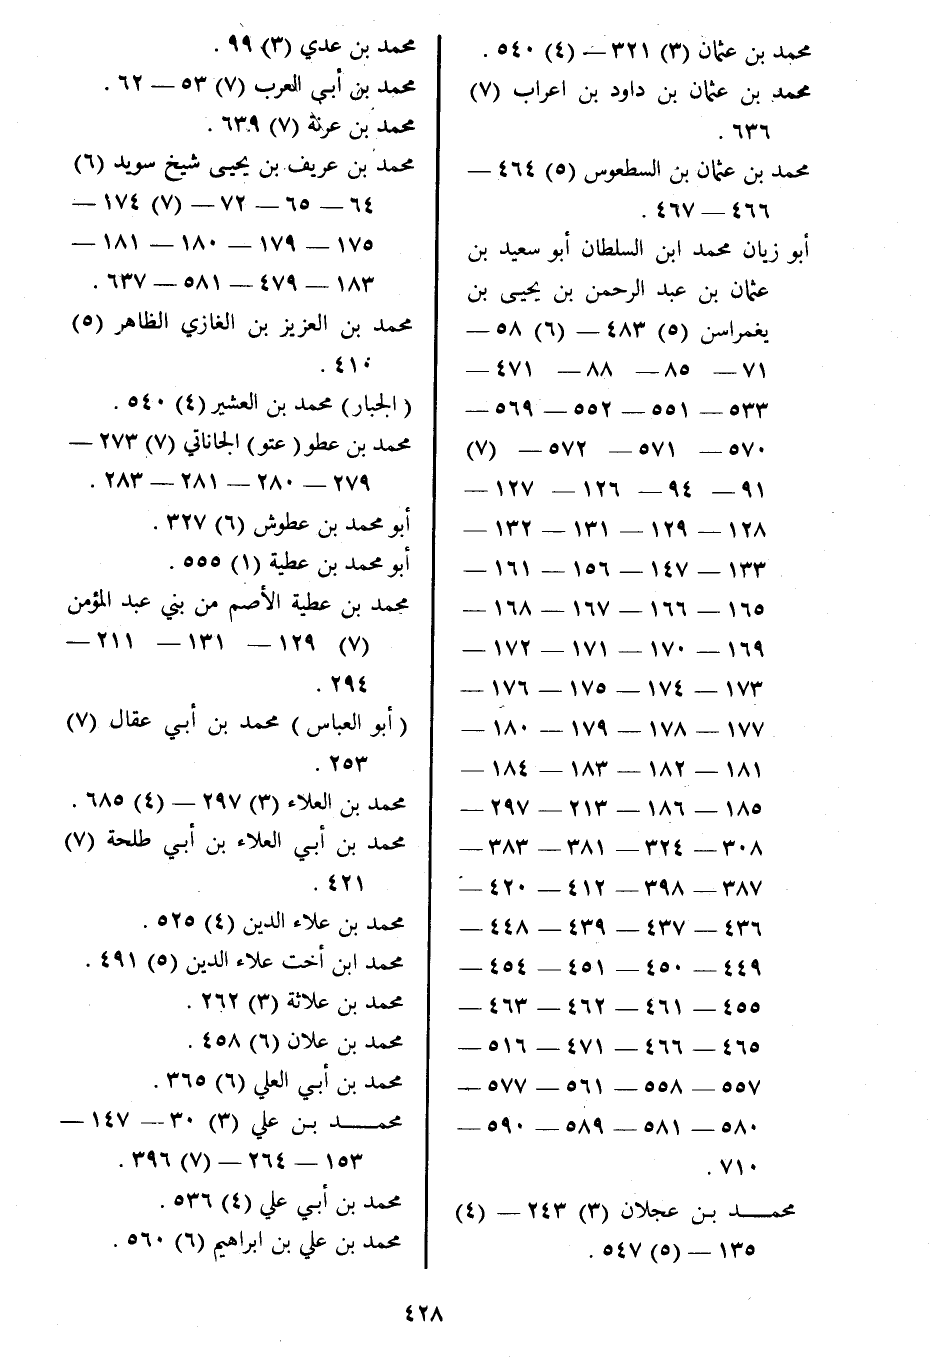 محمد بن عثمان (٣) ٣٢١ — (٤) ٥٤٠ .
محمد بن عثمان بن داود بن اعراب (٧)
٦٣٦ .
محمد بن عثمان بن السطعوس (٥) ٤٦٤ —
٤٦٦ — ٤٦٧ .
أبو زيان محمد ابن السلطان أبو سعيد بن
عثمان بن عبد الرحمن بن يحيى بن
يغمراسن (٥) ٤٨٣ — (٦) ٥٨ —
٧١ — ٨٥ — ٨٨ — ٤٧١ —
٥٣٣ — ٥٥١ — ٥٥٢ — ٥٦٩ —
٥٧٠ — ٥٧١ — ٥٧٢ — (٧)
٩١ — ٩٤ — ١٢٦ — ١٢٧ —
١٢٨ — ١٢٩ — ١٣١ — ١٣٢ —
١٣٣ — ١٤٧ — ١٥٦ — ١٦١ —
١٦٥ — ١٦٦ — ١٦٧ — ١٦٨ —
١٦٩ — ١٧٠ — ١٧١ — ١٧٢ —
١٧٣ — ١٧٤ — ١٧٥ — ١٧٦ —
١٧٧ — ١٧٨ — ١٧٩ — ١٨٠ —
١٨١ — ١٨٢ — ١٨٣ — ١٨٤ —
١٨٥ — ١٨٦ — ٢١٣ — ٢٩٧ —
٣٠٨ — ٣٢٤ — ٣٨١ — ٣٨٣ —
٣٨٧ — ٣٩٨ — ٤١٢ — ٤٢٠ —
٤٣٦ — ٤٣٧ — ٤٣٩ — ٤٤٨ —
٤٤٩ — ٤٥٠ — ٤٥١ — ٤٥٤ —
٤٥٥ — ٤٦١ — ٤٦٢ — ٤٦٣ —
٤٦٥ — ٤٦٦ — ٤٧١ — ٥١٦ —
٥٥٧ — ٥٥٨ — ٥٦١ — ٥٧٧ —
٥٨٠ — ٥٨١ — ٥٨٩ — ٥٩٠ —
٧١٠ .
محمـــد بن عجلان (٣) ٢٤٣ — (٤)
١٣٥ — (٥) ٥٤٧ .
محمد بن عدي (٣) ٩٩ .
محمد بن أبي العرب (٧) ٥٣ — ٦٢ .
محمد بن عرنة (٧) ٦٣٩ .
محمد بن عريف بن يحيى شيخ سويد (٦)
٦٤ — ٦٥ — ٧٢ — (٧) ١٧٤ —
١٧٥ — ١٧٩ — ١٨٠ — ١٨١ —
١٨٣ — ٤٧٩ — ٥٨١ — ٦٣٧ .
محمد بن العزيز بن الغازي الظاهر (٥)
٤١٠ .
(الجبار) محمد بن العشير (٤) ٥٤٠ .
محمد بن عطو (عتو) الجاناتي (٧) ٢٧٣ —
٢٧٩ — ٢٨٠ — ٢٨١ — ٢٨٣ .
أبو محمد بن عطوش (٦) ٣٢٧ .
أبو محمد بن عطية (١) ٥٥٥ .
محمد بن عطية الأصم من بني عبد المؤمن
(٧) ١٢٩ — ١٣١ — ٢١١ —
٢٩٤ .
(أبو العباس) محمد بن أبي عقال (٧)
٢٥٣ .
محمد بن العلاء (٣) ٢٩٧ — (٤) ٦٨٥ .
محمد بن أبي العلاء بن أبي طلحة (٧)
٤٢١ .
محمد بن علاء الدين (٤) ٥٢٥ .
محمد ابن أخت علاء الدين (٥) ٤٩١ .
محمد بن علاثة (٣) ٢٦٢ .
محمد بن علان (٦) ٤٥٨ .
محمد بن أبي العلي (٦) ٣٦٥ .
محمـــد بن علي (٣) ٣٠ — ١٤٧ —
١٥٣ — ٢٦٤ — (٧) ٣٩٦ .
محمد بن أبي علي (٤) ٥٣٦ .
محمد بن علي بن ابراهيم (٦) ٥٦٠ .
٤٢٨